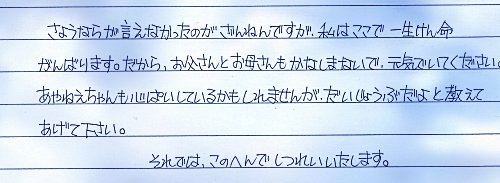 さようならが言えなかったのがざんねんですが、私はママで一生けん命
がんばります。だから、お父さんとお母さんもかなしまないで、元気でいてください。
あやねえちゃんも心ぱいしているかもしれませんが、だいじょうぶだよと教えて
あげて下さい。
それでは、このへんでしつれいいたします。